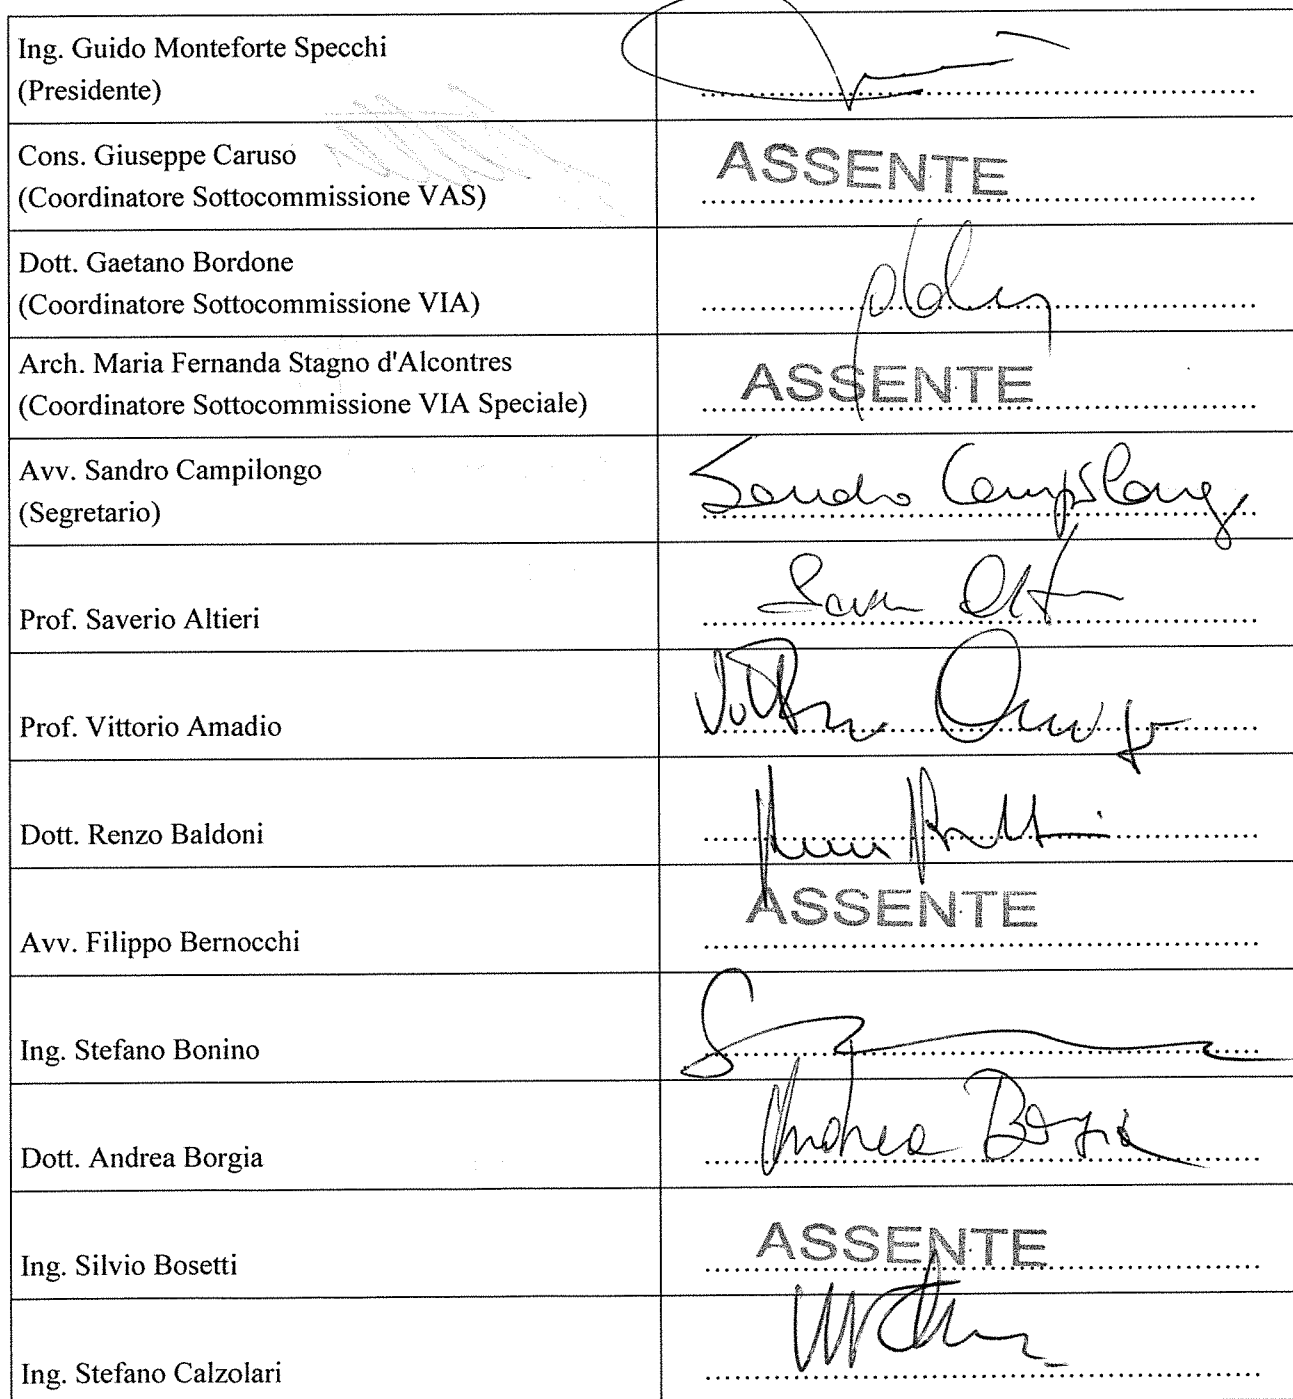 Ing. Guido Monteforte Specchi
(Presidente)
Cons. Giuseppe Caruso
(Coordinatore Sottocommissione VAS)
ASSENTE
Dott. Gaetano Bordone
(Coordinatore Sottocommissione VIA)
Arch. Maria Fernanda Stagno d'Alcontres
(Coordinatore Sottocommissione VIA Speciale)
ASSENTE
Avv. Sandro Campilongo
(Segretario)
Sandro Campilongo
Prof. Saverio Altieri
Prof. Vittorio Amadio
Dott. Renzo Baldoni
Avv. Filippo Bernocchi
ASSENTE
Ing. Stefano Bonino
Dott. Andrea Borgia
Andrea Borgia
Ing. Silvio Bosetti
ASSENTE
Ing. Stefano Calzolari